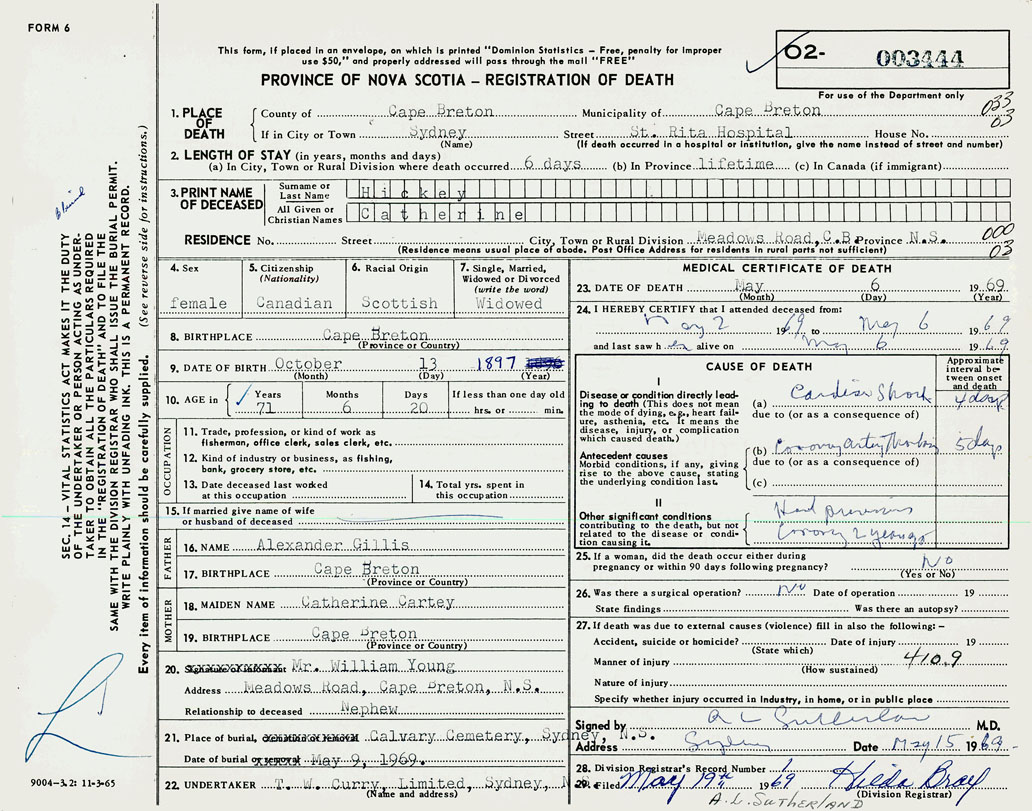 FORM 6
This form, if placed in an envelope, on which is printed "Dominion Statistics – Free, penalty for improper
use $50," and properly addressed will pass through the mail "FREE"
PROVINCE OF NOVA SCOTIA – REGISTRATION OF DEATH
02- 003444
For use of the Department only
033
03
1. PLACE OF DEATH
County of Cape Breton Municipality of Cape Breton
If in City or Town Sydney Street St. Rita Hospital House No.
(Name) (If death occurred in a hospital or institution, give the name instead of street and number)
2. LENGTH OF STAY (in years, months and days)
(a) In City, Town or Rural Division where death occurred 6 days (b) In Province lifetime (c) In Canada (if immigrant)
3. PRINT NAME OF DECEASED
Surname or Last Name Hickey
All Given or Christian Names Catherine
RESIDENCE No. Street City, Town or Rural Division Meadows Road, C.B. Province N.S.
(Residence means usual place of abode. Post Office Address for residents in rural parts not sufficient)
000
03
4. Sex
female
5. Citizenship
(Nationality)
Canadian
6. Racial Origin
Scottish
7. Single, Married,
Widowed or Divorced
(write the word)
Widowed
8. BIRTHPLACE Cape Breton
(Province or Country)
9. DATE OF BIRTH October 13 1897
(Month) (Day) (Year)
10. AGE in Years Months Days If less than one day old
71 6 20 hrs. or min.
OCCUPATION
11. Trade, profession, or kind of work as
fisherman, office clerk, sales clerk, etc.
12. Kind of industry or business, as fishing,
bank, grocery store, etc.
13. Date deceased last worked
at this occupation
14. Total yrs. spent in
this occupation
15. If married give name of wife
or husband of deceased
FATHER
16. NAME Alexander Gillis
17. BIRTHPLACE Cape Breton
(Province or Country)
MOTHER
18. MAIDEN NAME Catherine Cartey
19. BIRTHPLACE Cape Breton
(Province or Country)
20. Mr. William Young
Address Meadows Road, Cape Breton, N.S.
Relationship to deceased Nephew
21. Place of burial, Calvary Cemetery, Sydney, N.S.
Date of burial May 9, 1969.
22. UNDERTAKER T. W. Curry, Limited, Sydney, N.S.
(Name and address)
MEDICAL CERTIFICATE OF DEATH
23. DATE OF DEATH May 6 1969
(Month) (Day) (Year)
24. I HEREBY CERTIFY that I attended deceased from:
May 2 1969 to May 6 1969
and last saw her alive on May 6 1969
CAUSE OF DEATH
Approximate
interval be-
tween onset
and death
I
Disease or condition directly lead-
ing to death (This does not mean
the mode of dying, e.g., heart fail-
ure, asthenia, etc. It means the
disease, injury, or complication
which caused death.)
(a) Cardiac Shock 4 days
due to (or as a consequence of)
Antecedent causes
Morbid conditions, if any, giving
rise to the above cause, stating
the underlying condition last.
(b) Coronary artery Thrombosis 5 days
due to (or as a consequence of)
(c)
II
Other significant conditions
contributing to the death, but not
related to the disease or condi-
tion causing it.
Had previous
Coronary 2 years ago
25. If a woman, did the death occur either during
pregnancy or within 90 days following pregnancy? No
(Yes or No)
26. Was there a surgical operation? No Date of operation 19
State findings Was there an autopsy?
27. If death was due to external causes (violence) fill in also the following: –
Accident, suicide or homicide? Date of injury 19
(State which)
Manner of injury 410.9
(How sustained)
Nature of injury
Specify whether injury occurred in industry, in home, or in public place
Signed by A L Sutherland M.D.
Address Sydney Date May 15 1969
28. Division Registrar's Record Number
29. Filed May 19th 1969 Hilda Bray
(Division Registrar)
A. L. SUTHERLAND
SEC. 14 – VITAL STATISTICS ACT MAKES IT THE DUTY
OF THE UNDERTAKER OR PERSON ACTING AS UNDER-
TAKER TO OBTAIN ALL THE PARTICULARS REQUIRED
IN THE "REGISTRATION OF DEATH" AND TO FILE THE
SAME WITH THE DIVISION REGISTRAR WHO SHALL ISSUE THE BURIAL PERMIT.
WRITE PLAINLY WITH UNFADING INK. THIS IS A PERMANENT RECORD.
Every item of information should be carefully supplied. (See reverse side for instructions.)
9004-3.2: 11-3-65